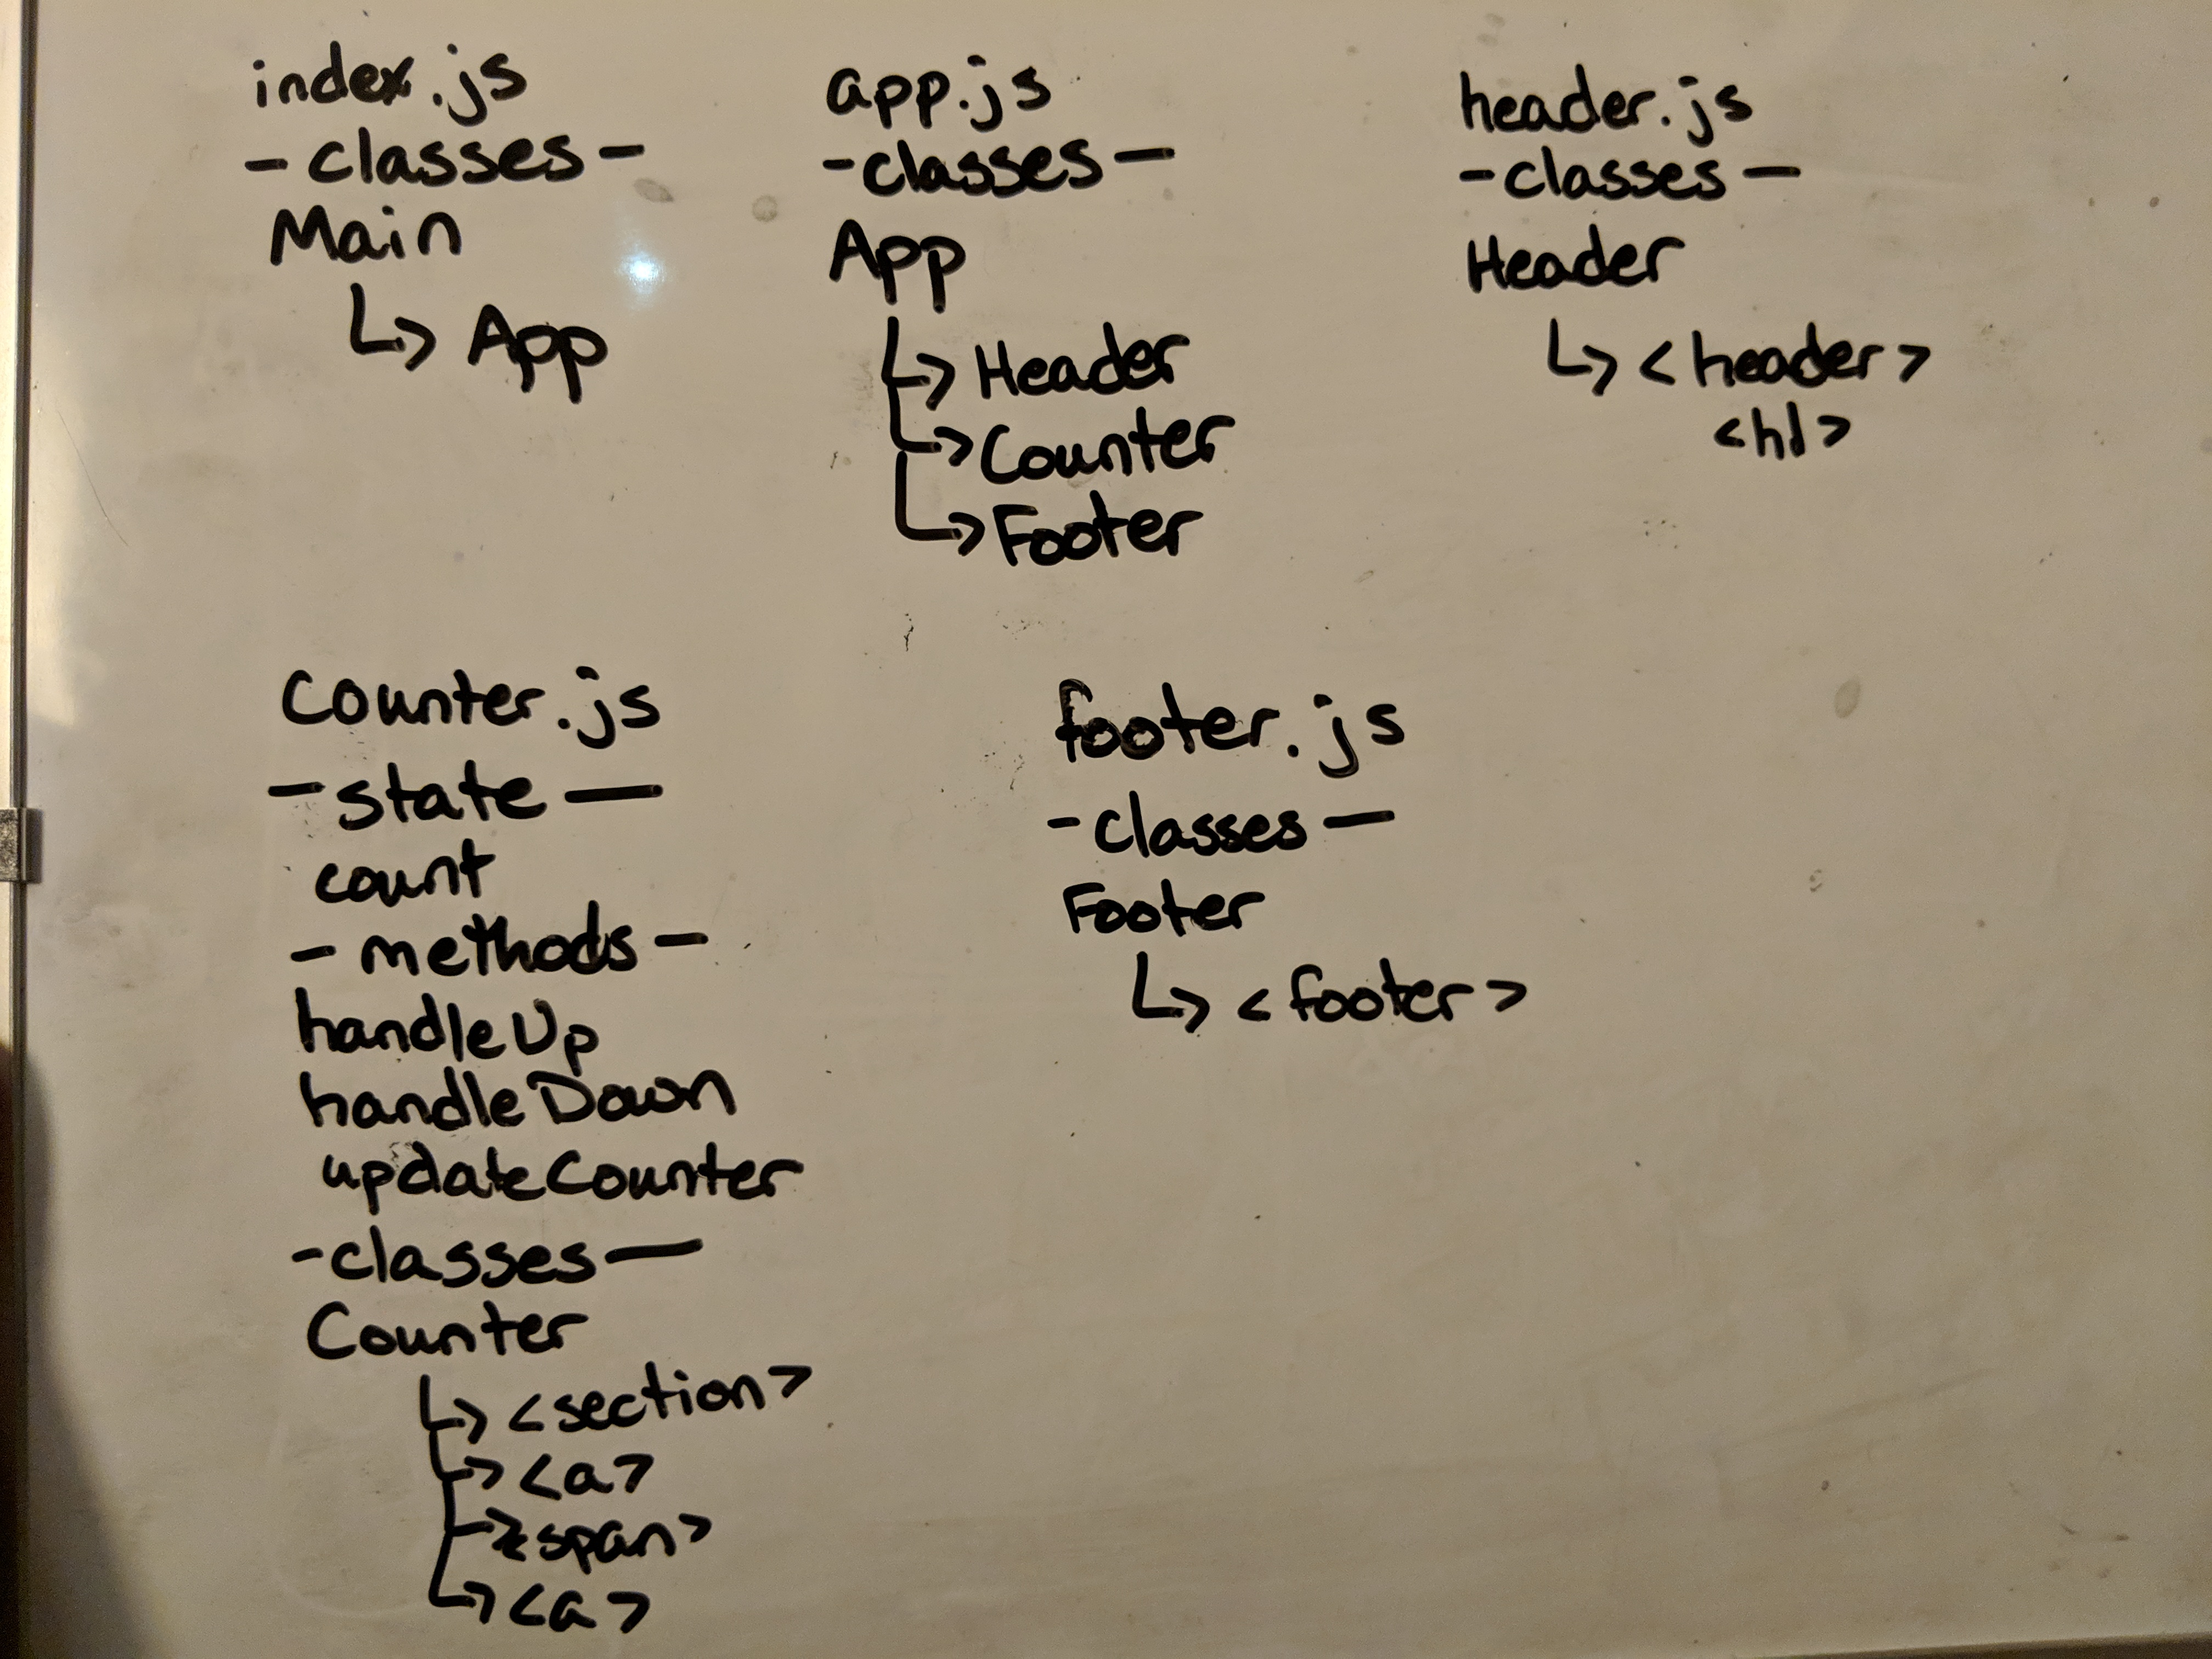 index.js
- classes -
Main
↳ App
app.js
- classes -
App
↳ Header
↳ Counter
↳ Footer
header.js
- classes -
Header
↳ <header>
<h1>
Counter.js
- state -
count
- methods -
handleUp
handleDown
updateCounter
- classes -
Counter
↳ <section>
↳ <a>
↳ <span>
↳ <a>
footer.js
- classes -
Footer
↳ <footer>